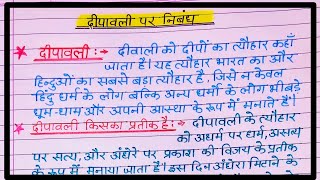 दीपावली पर निबंध
दीपावली :→ दीवाली को दीपों का त्यौहार कहाँ
जाता है। यह त्यौहार भारत का और
हिन्दुओं का सबसे बडा त्यौहार है, जिसे न केवल
हिंदु धर्म के लोग बल्कि अन्य धर्मो के लोग भी बड़े
धूम-धाम और अपनी आस्था के रूप में मनाते हैं।
दीपावली किसका प्रतीक है :→ दीपावली के त्यौहार
को अधर्म पर धर्म, असत्य
पर सत्य, और अंधेरे पर प्रकाश की विजय के प्रतीक
के रूप में मनाया जाता है। इस दिन अंधेरा मिटाने के